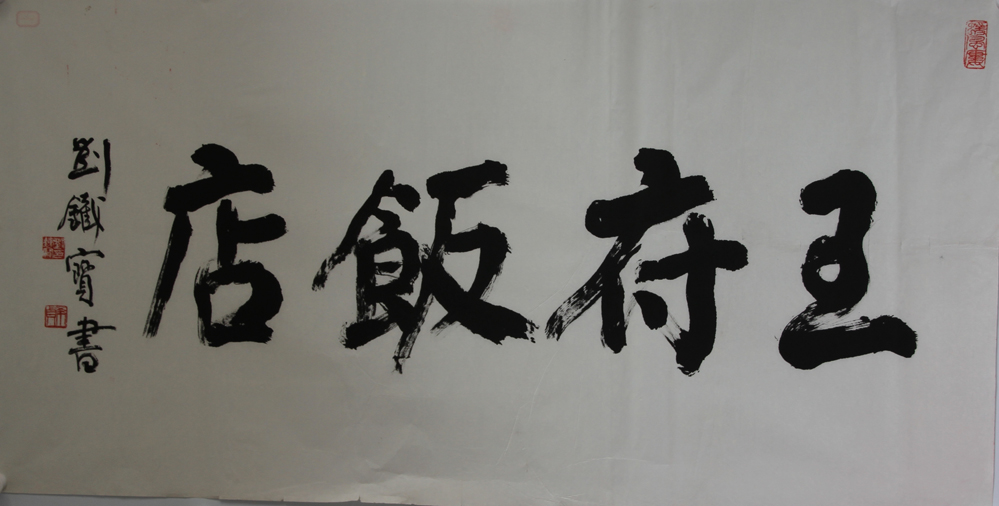 王府飯店
劉鐵寶書